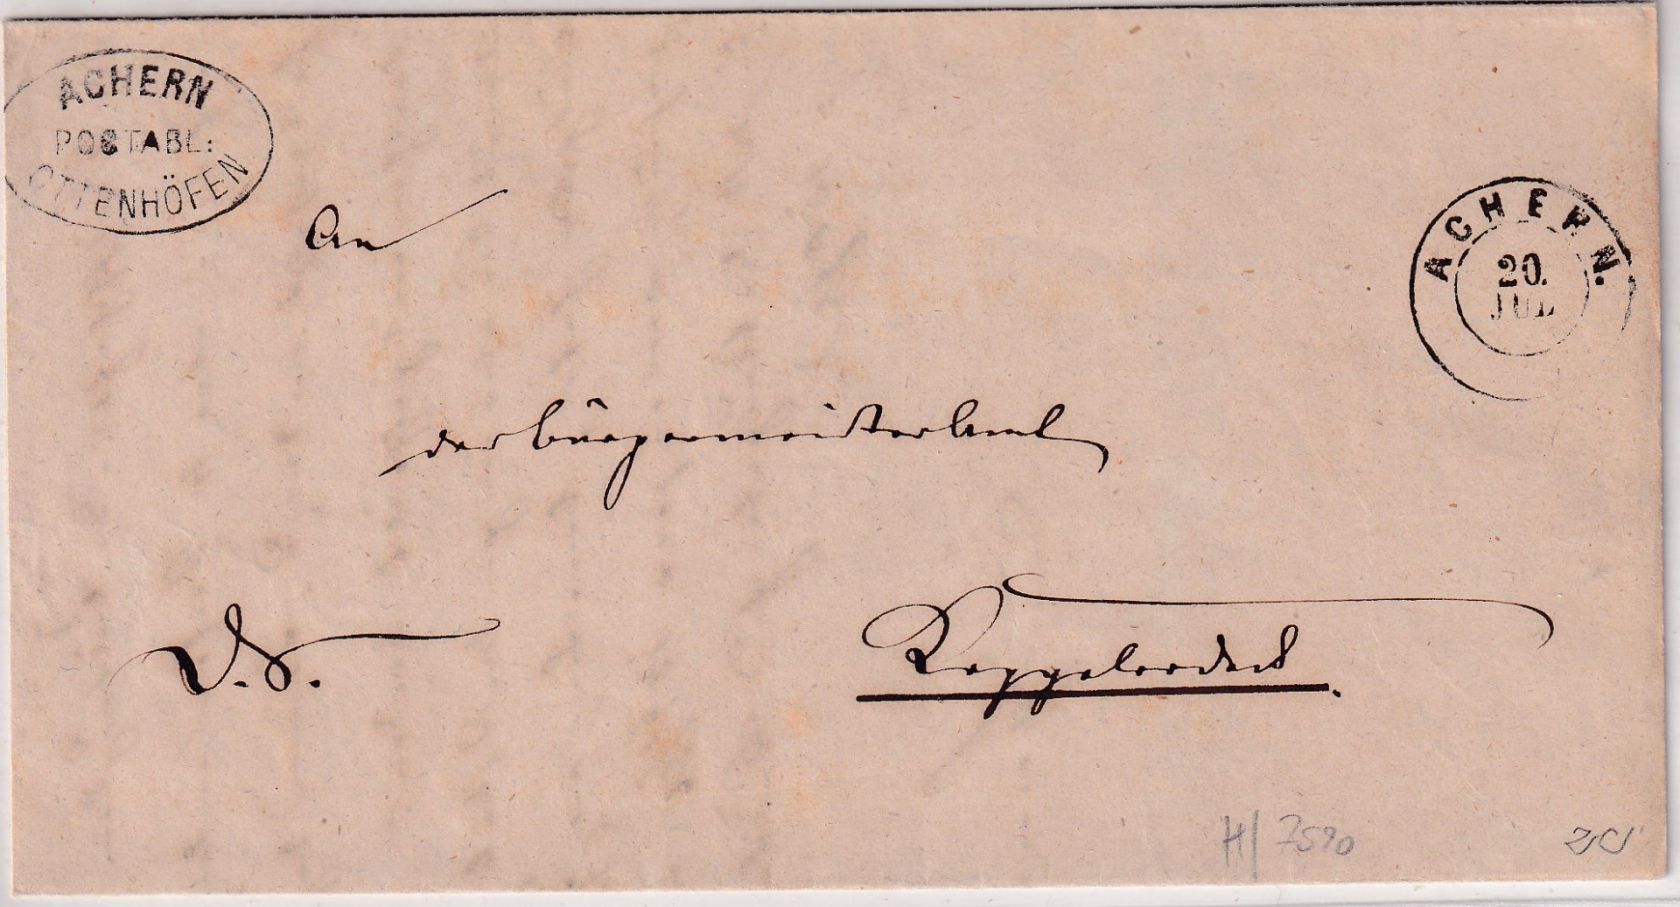 ACHERN
POSTABL:
OTTENHÖFEN
ACHERN.
20.
JUL
An
das Bürgermeisteramt
D. S.
Kappelrodeck.
H/ 7590